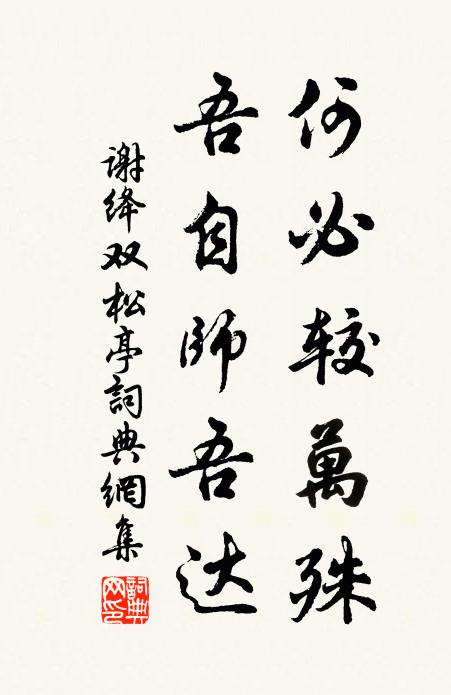 何必较萬殊
吾自師吾达
谢绛双松亭詞典網集
詞典
网印